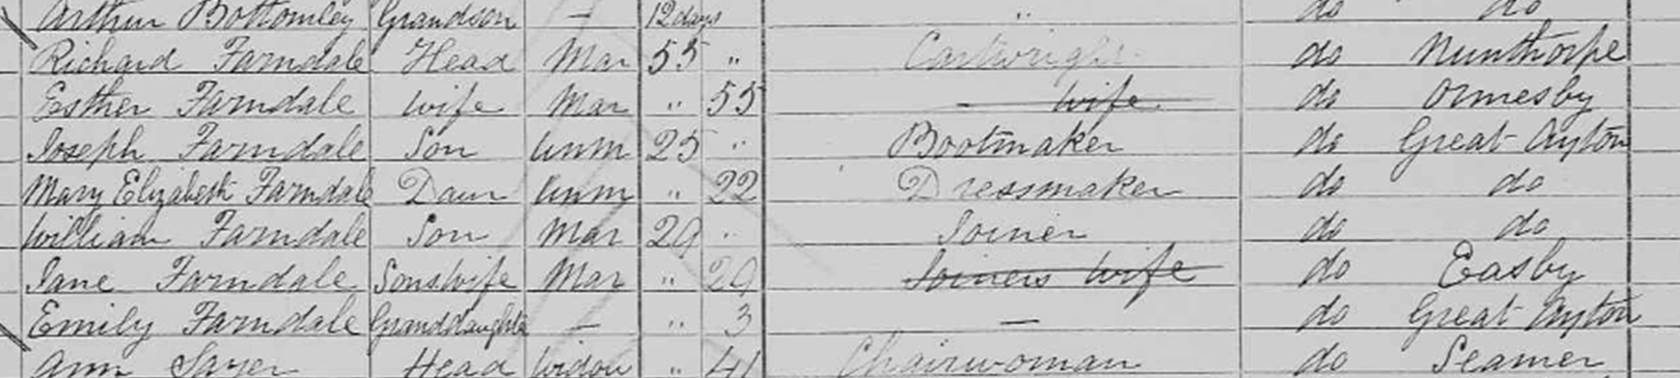 Arthur Bottomley Grandson — 12 days " do do
Richard Farndale Head Mar 55 " Cartwright do Nunthorpe
Esther Farndale wife Mar " 55 wife do Ormesby
Joseph Farndale Son Unm 25 " Bootmaker do Great Ayton
Mary Elizabeth Farndale Daur Unm " 22 Dressmaker do do
William Farndale Son Mar 29 " Joiner do do
Jane Farndale Sonswife Mar " 29 Joiners wife do Easby
Emily Farndale Granddaughter — " 3 — do Great Ayton
Ann Sayer Head Widow " 41 Chairwoman do Seamer